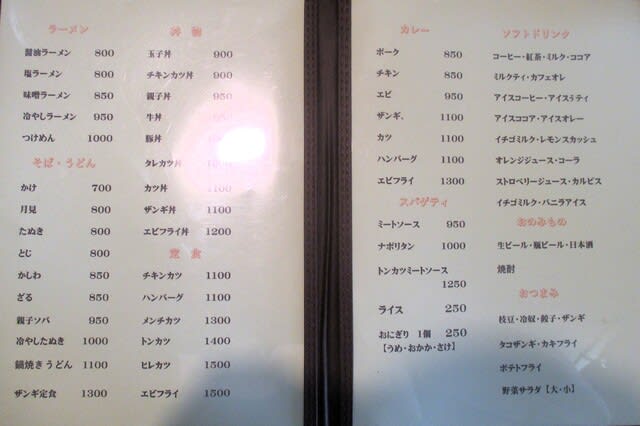 ラーメン
醤油ラーメン 800
塩ラーメン 800
味噌ラーメン 850
冷やしラーメン 950
つけめん 1000
そば・うどん
かけ 700
月見 800
たぬき 800
とじ 800
かしわ 850
ざる 850
親子ソバ 950
冷やしたぬき 1000
鍋焼きうどん 1100
ザンギ定食 1300
丼物
玉子丼 900
チキンカツ丼 900
親子丼 950
牛丼
豚丼
タレカツ丼
カツ丼 1100
ザンギ丼 1100
エビフライ丼 1200
定食
チキンカツ 1100
ハンバーグ 1100
メンチカツ 1300
トンカツ 1400
ヒレカツ 1500
エビフライ 1500
カレー
ポーク 850
チキン 850
エビ 950
ザンギ、 1100
カツ 1100
ハンバーグ 1100
エビフライ 1300
スパゲティ
ミートソース 950
ナポリタン 1000
トンカツミートソース
1250
ライス 250
おにぎり 1個 250
【うめ・おかか・さけ】
ソフトドリンク
コーヒー・紅茶・ミルク・ココア
ミルクティ・カフェオレ
アイスコーヒー・アイスティ
アイスココア・アイスオレー
イチゴミルク・レモンスカッシュ
オレンジジュース・コーラ
ストロベリージュース・カルピス
イチゴミルク・バニラアイス
おのみもの
生ビール・瓶ビール・日本酒
焼酎
おつまみ
枝豆・冷奴・餃子・ザンギ
タコザンギ・カキフライ
ポテトフライ
野菜サラダ【大・小】